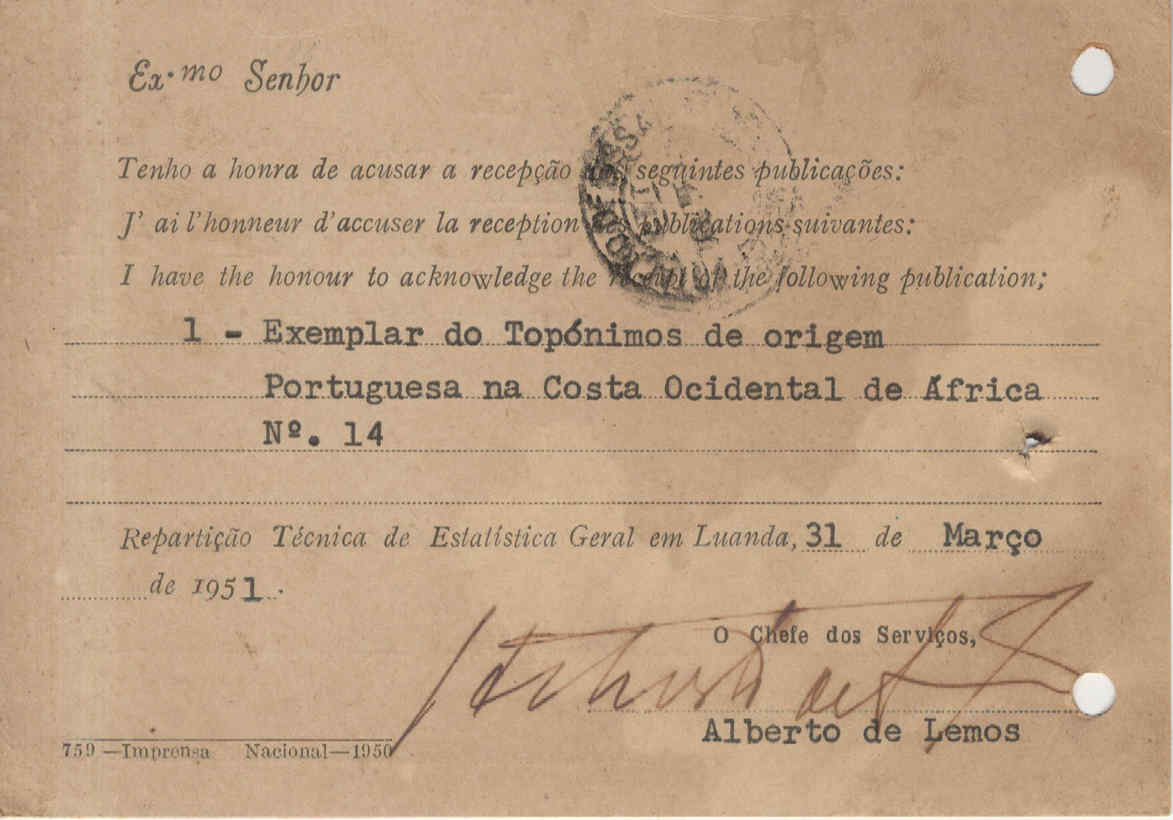 Ex.mo Senhor
Tenho a honra de acusar a recepção das seguintes publicações:
J' ai l'honneur d'accuser la reception des publications suivantes:
I have the honour to acknowledge the receipt of the following publication;
1 - Exemplar do Topónimos de origem
Portuguesa na Costa Ocidental de África
Nº. 14
Repartição Técnica de Estatística Geral em Luanda, 31 de Março
de 1951.
O Chefe dos Serviços,
Alberto de Lemos
759—Imprensa Nacional—1950